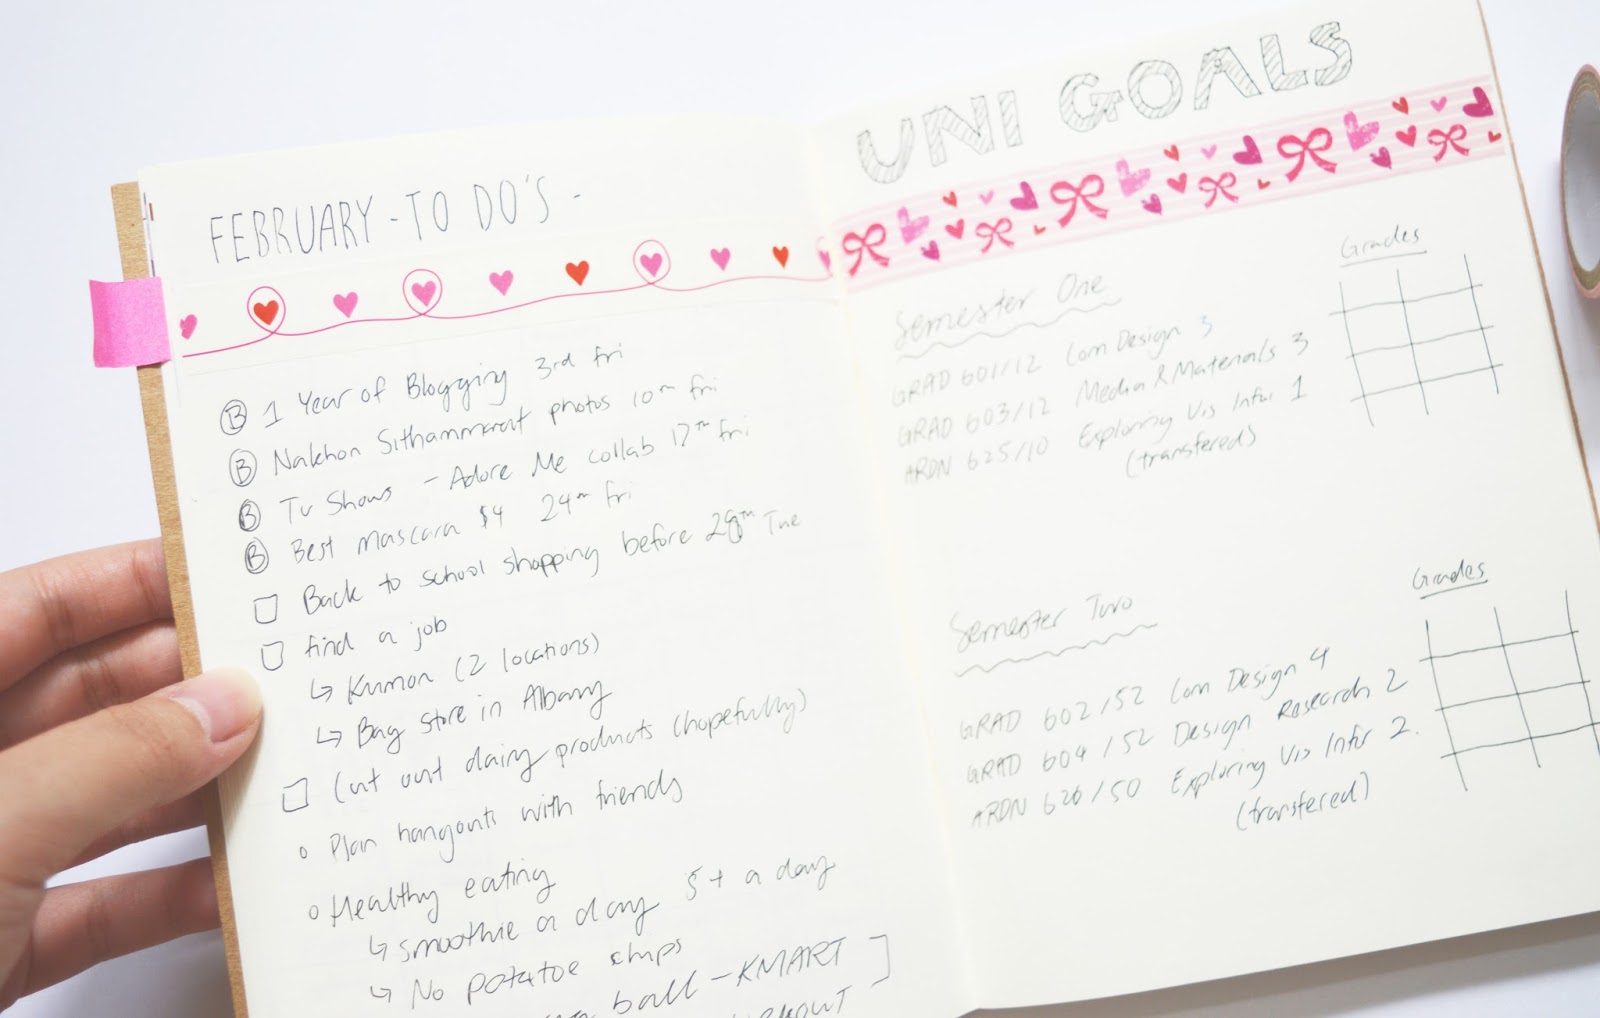 FEBRUARY - TO DO'S -
B 1 Year of Blogging 3rd fri
B Nakhon Sithammarat photos 10th fri
B Tv Shows - Adore Me collab 17th fri
B Best mascara $4 24th fri
Back to school shopping before 28th Tue
find a job
↳ Kumon (2 locations)
↳ Bag Store in Albany
Cut out dairy products (hopefully)
Plan hangouts with friends
Healthy eating
↳ smoothie a day 5+ a day
↳ No potatoe chips
ball - KMART
UNI GOALS
Semester One
Grades
GRAD 601/12 Com Design 3
GRAD 603/12 Media & Materials 3
ARDN 625/10 Exploring Vis Infor 1
(transfered)
Semester Two
Grades
GRAD 602/52 Com Design 4
GRAD 604/52 Design Research 2
ARDN 626/50 Exploring Vis Infor 2.
(transfered)